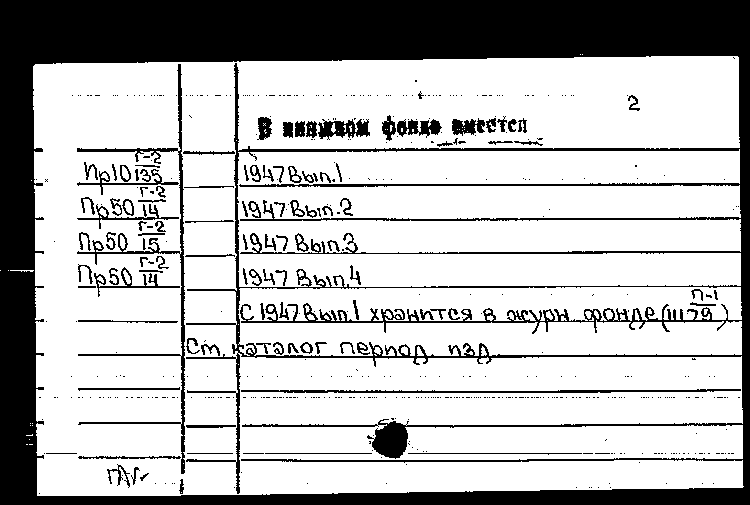 2
В книжном фонде имеется
Пр10 Г-2/135 1947 Вып.1
Пр50 Г-2/14 1947 Вып.2
Пр50 Г-2/15 1947 Вып.3
Пр50 Г-2/14 1947 Вып.4
С 1947 Вып.1 хранится в журн. фонде (П-1/1179)
См. каталог период. изд.